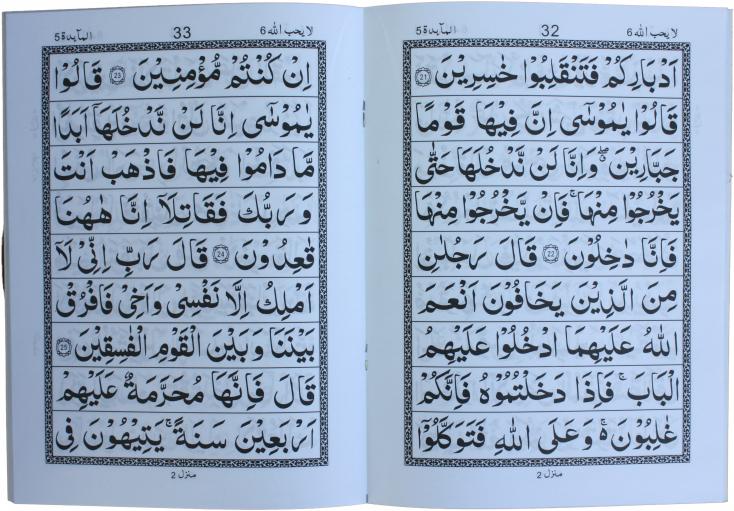 لا يحب الله 6 32 المآىدة 5
اَدْبَارِكُمْ فَتَنْقَلِبُوْا خٰسِرِيْنَ 21
قَالُوْا يٰمُوْسٰٓى اِنَّ فِيْهَا قَوْمًا
جَبَّارِيْنَ ۖ وَاِنَّا لَنْ نَّدْخُلَهَا حَتّٰى
يَخْرُجُوْا مِنْهَا ۚ فَاِنْ يَّخْرُجُوْا مِنْهَا
فَاِنَّا دٰخِلُوْنَ 22 قَالَ رَجُلٰنِ
مِنَ الَّذِيْنَ يَخَافُوْنَ اَنْعَمَ
اللّٰهُ عَلَيْهِمَا ادْخُلُوْا عَلَيْهِمُ
الْبَابَ ۚ فَاِذَا دَخَلْتُمُوْهُ فَاِنَّكُمْ
غٰلِبُوْنَ ۚ وَعَلَى اللّٰهِ فَتَوَكَّلُوْٓا
منزل 2
لا يحب الله 6 33 المآىدة 5
اِنْ كُنْتُمْ مُّؤْمِنِيْنَ 23 قَالُوْا
يٰمُوْسٰٓى اِنَّا لَنْ نَّدْخُلَهَآ اَبَدًا
مَّا دَامُوْا فِيْهَا فَاذْهَبْ اَنْتَ
وَرَبُّكَ فَقَاتِلَآ اِنَّا هٰهُنَا
قٰعِدُوْنَ 24 قَالَ رَبِّ اِنِّيْ لَآ
اَمْلِكُ اِلَّا نَفْسِيْ وَاَخِيْ فَافْرُقْ
بَيْنَنَا وَبَيْنَ الْقَوْمِ الْفٰسِقِيْنَ 25
قَالَ فَاِنَّهَا مُحَرَّمَةٌ عَلَيْهِمْ
اَرْبَعِيْنَ سَنَةً ۚ يَتِيْهُوْنَ فِى
منزل 2